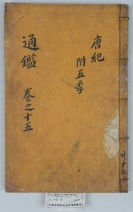 唐紀
附五季
通鑑
卷之十五